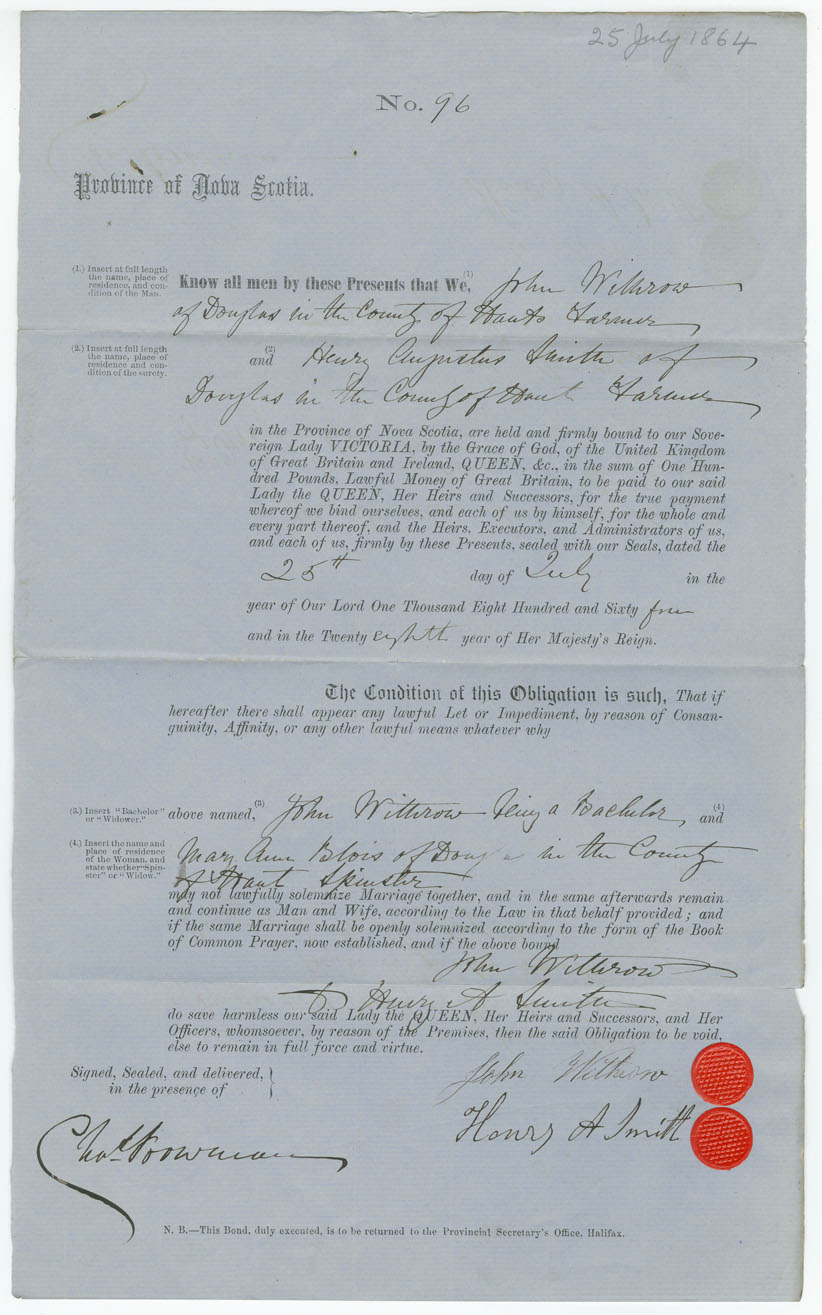 25 July 1864
No. 96
Province of Nova Scotia.
(1.) Insert at full length
the name, place of
residence, and con-
dition of the Man.
Know all men by these Presents that We, (1) John Withrow
of Douglas in the County of Hants Farmer
(2.) Insert at full length
the name, place of
residence and con-
dition of the surety.
and (2) Henry Augustus Smith of
Douglas in the County of Hant Farmer
in the Province of Nova Scotia, are held and firmly bound to our Sove-
reign Lady VICTORIA, by the Grace of God, of the United Kingdom
of Great Britain and Ireland, QUEEN, &c., in the sum of One Hun-
dred Pounds, Lawful Money of Great Britain, to be paid to our said
Lady the QUEEN, Her Heirs and Successors, for the true payment
whereof we bind ourselves, and each of us by himself, for the whole and
every part thereof, and the Heirs, Executors, and Administrators of us,
and each of us, firmly by these Presents, sealed with our Seals, dated the
25th day of July in the
year of Our Lord One Thousand Eight Hundred and Sixty four
and in the Twenty eighth year of Her Majesty's Reign.
The Condition of this Obligation is such, That if
hereafter there shall appear any lawful Let or Impediment, by reason of Consan-
guinity, Affinity, or any other lawful means whatever why
(3.) Insert "Bachelor"
or "Widower."
above named, (3) John Withrow being a Bachelor, and (4)
(4.) Insert the name and
place of residence
of the Woman, and
state whether "Spin-
ster" or "Widow."
Mary Ann Blois of Douglas in the County
of Hant Spinster
may not lawfully solemnize Marriage together, and in the same afterwards remain
and continue as Man and Wife, according to the Law in that behalf provided; and
if the same Marriage shall be openly solemnized according to the form of the Book
of Common Prayer, now established, and if the above bound
John Withrow
& Henry A Smith
do save harmless our said Lady the QUEEN, Her Heirs and Successors, and Her
Officers, whomsoever, by reason of the Premises, then the said Obligation to be void,
else to remain in full force and virtue.
Signed, Sealed, and delivered,
in the presence of
John Withrow
Henry A Smith
Chas Bowman
N. B.—This Bond, duly executed, is to be returned to the Provincial Secretary's Office, Halifax.